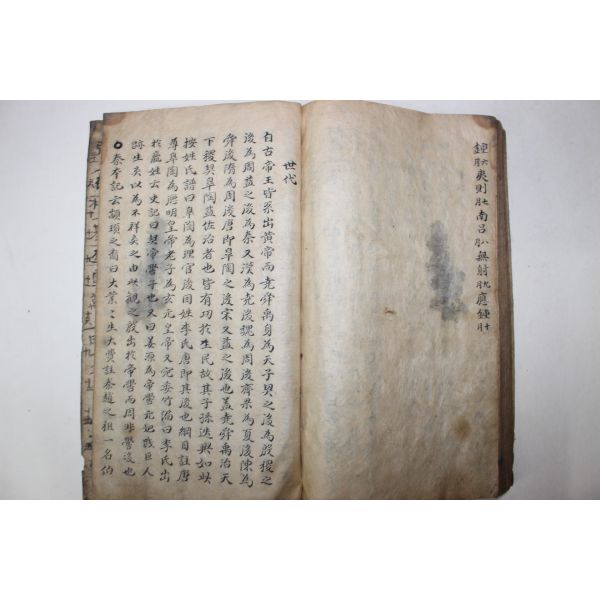 鍾六月夷則七月南呂八月無射九月應鍾十月
世代
自古帝王皆系出黃帝而堯舜禹身為天子契之後為殷稷之
後為周益之後為秦又漢為堯後魏為周後齊梁為夏後陳為
舜後隋為周後唐即皐陶之後宋又益之後也盖堯舜禹治天
下稷契皐陶益佐治者也皆有功於生民故其子孫迭興如此
按姓氏譜曰皐陶為理官後因姓李氏唐即其後也綱目註唐
尊皐陶為德明皇帝老子為玄元皇帝又完委竹俻曰李氏出
於盧姓云史記曰契帝嚳子也又曰姜源為帝嚳元妃踐巨人
跡生矣以為不祥矣之由此觀之殷出於帝嚳而周非嚳後也
秦本記云顓頊之裔曰大業〻生大費註秦趙之祖一名伯